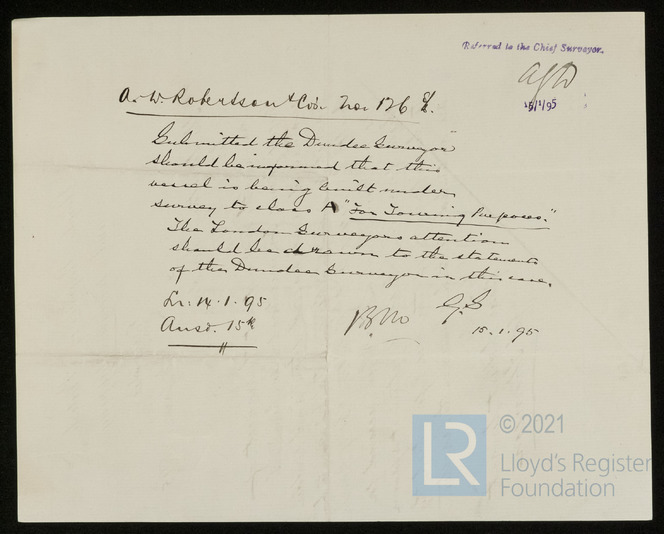 Referred to the Chief Surveyor.
15/1/95
A. W. Robertson & Co's Nos 126
Submitted the Dundee Surveyor
should be informed that this
vessel is being built under
survey to class A "For Towing Purposes."
The London Surveyors attention
should be drawn to the statements
of the Dundee Surveyor in this case.
Lr: 14.1.95
Ansd. 15th
15.1.95
LR
© 2021
Lloyd's Register
Foundation